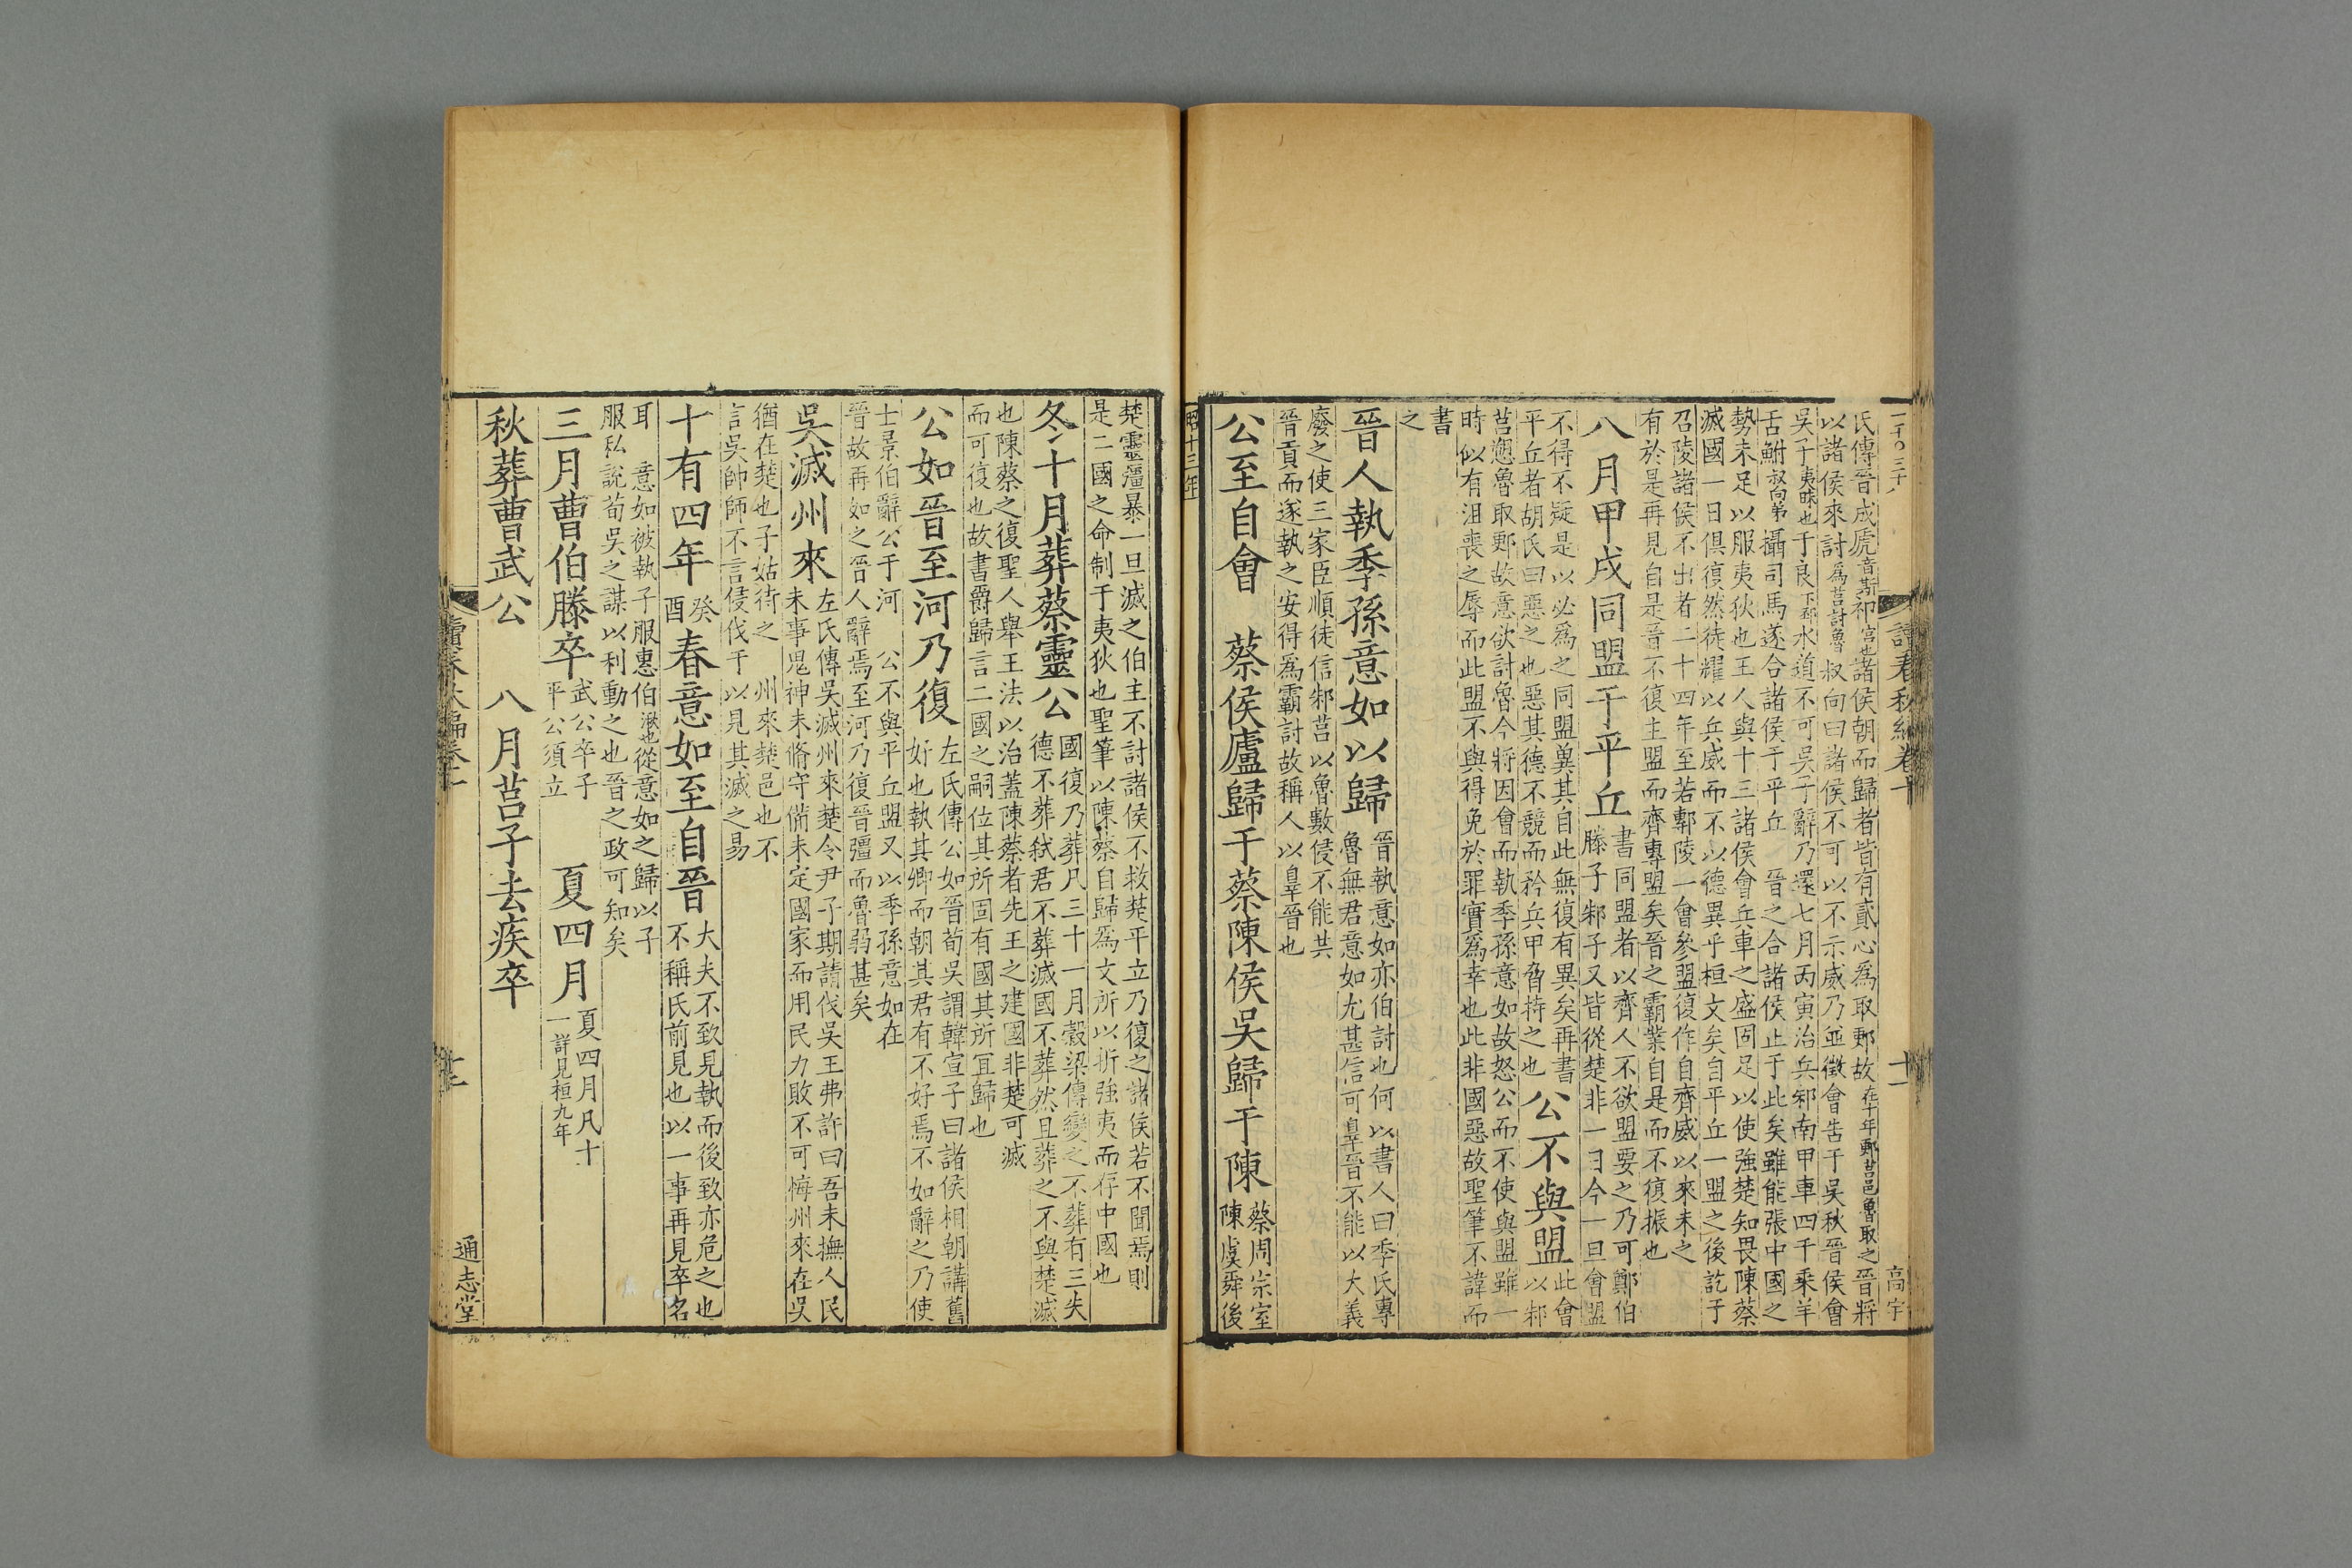 氏傳晉成虒音斯祁宫也諸侯朝而歸者皆有貳心爲取郠故在十年郠莒邑魯取之晉將
以諸侯來討爲莒討魯叔向曰諸侯不可以不示威乃並徵會告于吳秋晉侯會
吳子夷昧也于良下邳水道不可吳子辭乃還七月丙寅治兵邾南甲車四千乘羊
舌鮒叔向弟攝司馬遂合諸侯于平丘　晉之合諸侯止于此矣雖能張中國之
勢未足以服夷狄也王人與十三諸侯會兵車之盛固足以使強楚知畏陳蔡
滅國一日俱復然徒耀以兵威而不以德異乎桓文矣自平丘一盟之後訖于
召陵諸侯不出者二十四年至若鄟陵一會參盟復作自齊威以來未之
有於是再見自是晉不復主盟而齊專盟矣晉之霸業自是而不復振也
八月甲戌同盟于平丘
書同盟者以齊人不欲盟要之乃可鄭伯
滕子邾子又皆從楚非一日今一旦會盟
不得不疑是以必爲之同盟冀其自此無復有異矣再書
平丘者胡氏曰惡之也惡其德不競而矜兵甲脅持之也
公不與盟
此會
以邾
莒愬魯取郠故意欲討魯今將因會而執季孫意如故怒公而不使與盟雖一
時似有沮喪之辱而此盟不與得免於罪實爲幸也此非國惡故聖筆不諱而
書
之
晉人執季孫意如以歸
晉執意如亦伯討也何以書人曰季氏專
魯無君意如尤甚信可辠晉不能以大義
廢之使三家臣順徒信邾莒以魯數侵不能共
晉貢而遂執之安得爲霸討故稱人以辠晉也
公至自會　蔡侯廬歸于蔡陳侯吳歸于陳
蔡周宗室
陳虞舜後
昭十三年
讀春秋編卷十
十一
高宇
楚靈彊暴一旦滅之伯主不討諸侯不救楚平立乃復之諸侯若不聞焉則
是二國之命制于夷狄也聖筆以陳蔡自歸爲文所以折強夷而存中國也
冬十月葬蔡靈公
國復乃葬凡三十一月穀梁傳變之不葬有三失
德不葬弒君不葬滅國不葬然且葬之不與楚滅
也陳蔡之復聖人舉王法以治蓋陳蔡者先王之建國非楚可滅
而可復也故書爵歸言二國之嗣位其所固有國其所宜歸也
公如晉至河乃復
左氏傳公如晉荀吳謂韓宣子曰諸侯相朝講舊
好也執其卿而朝其君有不好焉不如辭之乃使
士景伯辭公于河　公不與平丘盟又以季孫意如在
晉故再如之晉人辭焉至河乃復晉彊而魯弱甚矣
吳滅州來
左氏傳吳滅州來楚令尹子期請伐吳王弗許曰吾未撫人民
未事鬼神未脩守備未定國家而用民力敗不可悔州來在吳
猶在楚也子姑待之　州來楚邑也不
言吳帥師不言侵伐于以見其滅之易
十有四年
癸
酉
春意如至自晉
大夫不致見執而後致亦危之也
不稱氏前見也以一事再見卒名
耳　意如被執子服惠伯湫也從意如之歸以子
服私說荀吳之謀以利動之也晉之政可知矣
三月曹伯滕卒
武公卒子
平公須立
夏四月
夏四月凡十
一詳見桓九年
秋葬曹武公　八月莒子去疾卒
讀春秋編卷十
十二
通志堂